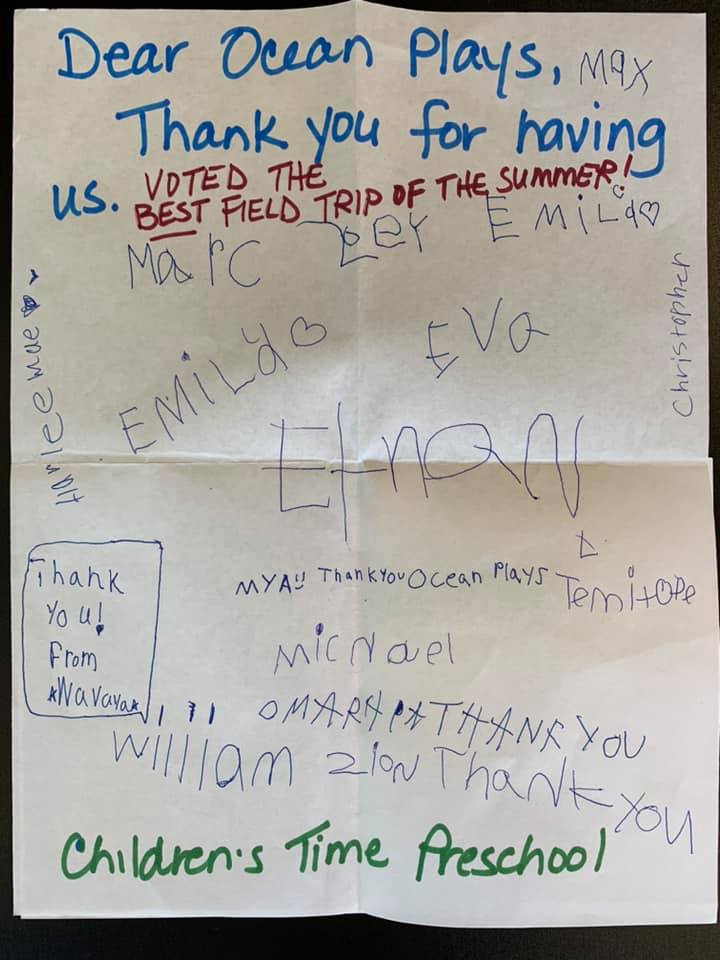 Dear Ocean Plays, Max
Thank you for having
us. VOTED THE
BEST FIELD TRIP OF THE SUMMER!
Marc Zoey EMiLia
Christopher
Harlee mae
EMiLia
Eva
Ethan
Thank
You!
From
Wavaya
MYA!! ThankYou Ocean Plays
Temitope
Michael
OMARH THANK YOU
William Zion Thank
You
Children's Time Preschool